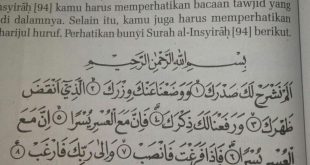 nsyirāḥ [94] kamu harus memperhatikan bacaan tawjid yang
di dalamnya. Selain itu, kamu juga harus memperhatikan
harijul huruf. Perhatikan bunyi Surah al-Insyirāḥ [94] berikut.
بِسْمِ اللّٰهِ الرَّحْمٰنِ الرَّحِيْمِ
اَلَمْ نَشْرَحْ لَكَ صَدْرَكَ ۝١ وَوَضَعْنَا عَنْكَ وِزْرَكَ ۝٢ الَّذِيْٓ اَنْقَضَ
ظَهْرَكَ ۝٣ وَرَفَعْنَا لَكَ ذِكْرَكَ ۝٤ فَاِنَّ مَعَ الْعُسْرِ يُسْرًا ۝٥ اِنَّ مَعَ
الْعُسْرِ يُسْرًا ۝٦ فَاِذَا فَرَغْتَ فَانْصَبْ ۝٧ وَاِلٰى رَبِّكَ فَارْغَبْ ۝٨